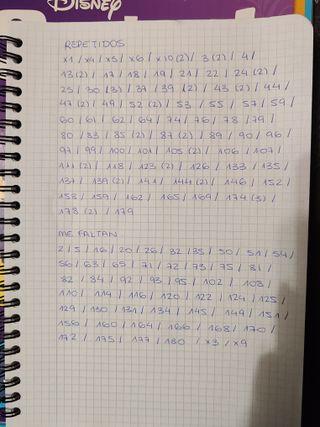 DISNEY
REPETIDOS
x1 / x4 / x5 / x6 / x10 (2) / 3 (2) / 4 /
13 (2) / 17 / 18 / 19 / 21 / 22 / 24 (2) /
25 / 30 (3) / 37 / 39 (2) / 43 (2) / 44 /
47 (2) / 49 / 52 (2) / 53 / 55 / 57 / 59 /
60 / 61 / 62 / 64 / 74 / 76 / 78 / 79 /
80 / 83 / 85 (2) / 87 (2) / 89 / 90 / 96 /
97 / 99 / 100 / 101 / 105 (2) / 106 / 107 /
111 (2) / 118 / 123 (2) / 126 / 133 / 135 /
137 / 139 (2) / 141 / 144 (2) / 146 / 152 /
158 / 159 / 162 / 165 / 169 / 174 (3) /
178 (2) / 179
ME FALTAN
2 / 5 / 16 / 20 / 26 / 32 / 35 / 50 / 51 / 54 /
56 / 63 / 69 / 71 / 72 / 73 / 75 / 81 /
82 / 84 / 92 / 93 / 95 / 102 / 103 /
110 / 114 / 116 / 120 / 122 / 124 / 125 /
129 / 130 / 131 / 134 / 145 / 149 / 151 /
156 / 160 / 164 / 166 / 168 / 170 /
172 / 175 / 177 / 180 / x3 / x9